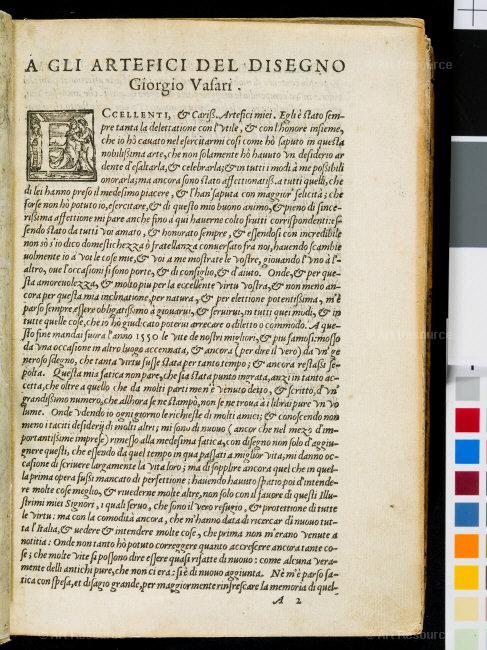 A GLI ARTEFICI DEL DISEGNO
Giorgio Vasari.
ECCELLENTI, & Cariß. Artefici miei. Egli è stato sem-
pre tanta la delettatione con l'vtile, & con l'honore insieme,
che io hò cauato nel esercitarmi cosi come hò saputo in questa
nobilißima arte, che non solamente hò hauuto vn desiderio ar
dente d'esaltarla, & celebrarla; & in tutti i modi à me poßibili
onorarla; ma ancora sono stato affettionatiß. a tutti quelli, che
di lei hanno preso il medesimo piacere, & l'han saputa con maggior' felicità; che
forse non hò potuto io, esercitare, & di questo mio buono animo, & pieno di since-
rißima affettione mi pare anche fino à qui hauerne colto frutti corrispondenti: es-
sendo stato da tutti voi amato, & honorato sempre, & essendosi con incredibile
non sò s'io dico domestichezza ò fratellanza conuersato fra noi, hauendo scambie
uolmente io à voi le cose mie, & voi à me mostrate le vostre, giouando l'vno à l'-
altro, oue l'occasioni si sono porte, & di consiglio, & d'aiuto. Onde, & per que-
sta amoreuolezza, & molto piu per la eccellente virtu vostra, & non meno an-
cora per questa mia inclinatione, per natura, & per elettione potentißima, m'è
parso sempre essere obligatißimo à giouarui, & seruirui, in tutti quei modi, & in
tutte quelle cose, che io hò giudicato poterui arrecare o diletto o commodo. A que-
sto fine mandai fuora l'anno 1550 le vite de nostri migliori, & piu famosi: mosso
da vna occasione in altro luogo accennata, & ancora (per dire il vero) da vn' ge
neroso sdegno, che tanta virtu fusse stata per tanto tempo; & ancora restassi se-
polta. Questa mia fatica non pare, che sia stata punto ingrata, anzi in tanto ac-
cetta, che oltre a quello che da molti parti men'è venuto detto, & scritto, d'vn
grandißimo numero, che allhora se ne stampò, non se ne troua à i librai pure vn vo
lume. Onde vdendo io ogni giorno le richieste di molti amici; & conoscendo non
meno i taciti desiderij di molti altri; mi sono di nuouo (ancor che nel mezo d'im-
portantißime imprese) rimesso alla medesima fatica, con disegno non solo d'aggiu-
gnere questi, che essendo da quel tempo in qua passati a miglior vita, mi danno oc-
casione di scriuere largamente la vita loro; ma di sopplire ancora quel che in quel-
la prima opera fussi mancato di perfettione; hauendo hauuto spatio poi d'intende-
re molte cose meglio, & riuederne molte altre, non solo con il fauore di questi Illu-
strimi miei Signori, i quali seruo, che sono il vero refugio, & protettione di tutte
le virtu: ma con la commodità ancora, che m'hanno data di ricercar di nuouo tut-
ta l'Italia, & vedere & intendere molte cose, che prima non m'erano venute a
notitia: Onde non tanto hò potuto correggere quanto accrescere ancora tante co-
se; che molte vite si possono dire essere quasi rifatte di nuouo: come alcuna vera-
mente delli antichi pure, che non ci era: si è di nuouo aggiunta. Nè m'è parso fa-
tica con spesa, et disagio grande, per maggiormente rinfrescare la memoria di quel-
A 2